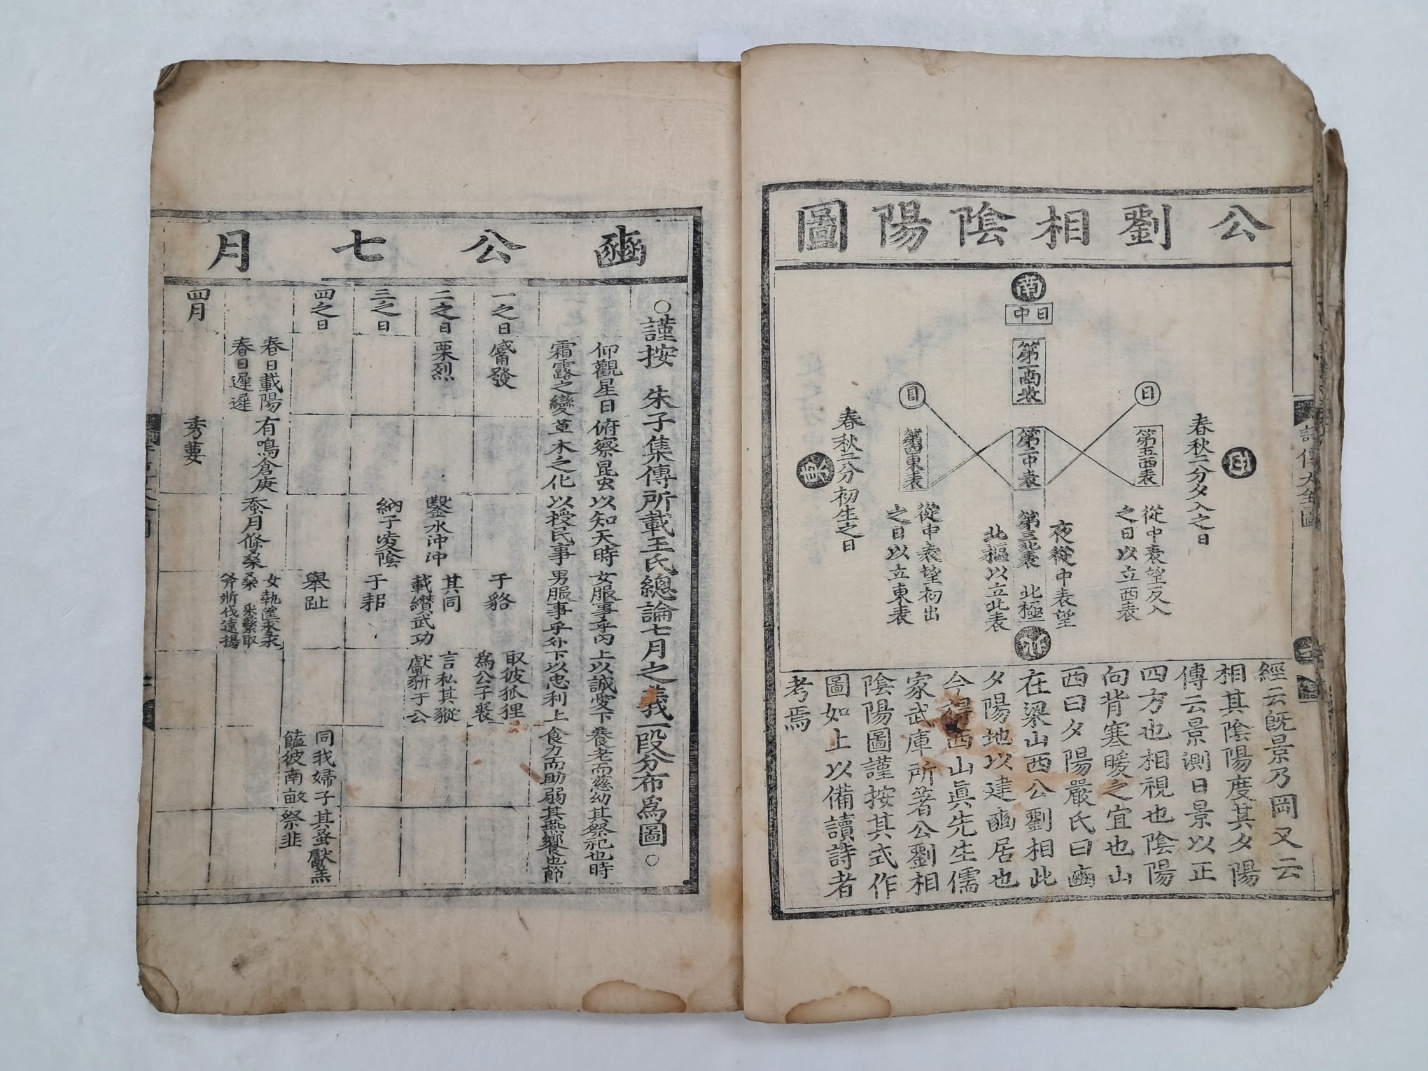 公劉相陰陽圖
南
日中
第一南表
日
日
第四東表
第二中表
第五西表
春秋二分夕入之日
從中表望反入
之日以立西表
夜從中表望
北極
第三北表
北樞以立北表
從中表望初出
之日以立東表
春秋二分初生之日
東
西
北
經云旣景乃岡又云
相其陰陽度其夕陽
傳云景測日景以正
四方也相視也陰陽
向背寒暖之宜也山
西曰夕陽嚴氏曰豳
在梁山西公劉相此
夕陽地以建豳居也
今得西山眞先生儒
家武庫所著公劉相
陰陽圖謹按其式作
圖如上以備讀詩者
考焉
詩傳大全圖
豳公七月
○謹按 朱子集傳所載王氏總論七月之義一段分布爲圖○
仰觀星日俯察昆虫以知天時女服事乎內上以誠愛下養老而慈幼其祭祀也時
霜露之變草木之化以授民事男服事乎外下以忠利上食力而助弱其燕饗也節
一之日觱發
于貉
取彼狐狸
爲公子裘
二之日栗烈
鑿冰沖沖
其同
載纘武功
言私其豵
獻豜于公
三之日
納于凌陰
于耜
四之日
擧趾
同我婦子其蚤獻羔
饁彼南畝祭韭
春日載陽有鳴倉庚
春日遲遲
蚕月條桑
女執
桑
采蘩
斧斨伐遠揚
四月
秀葽